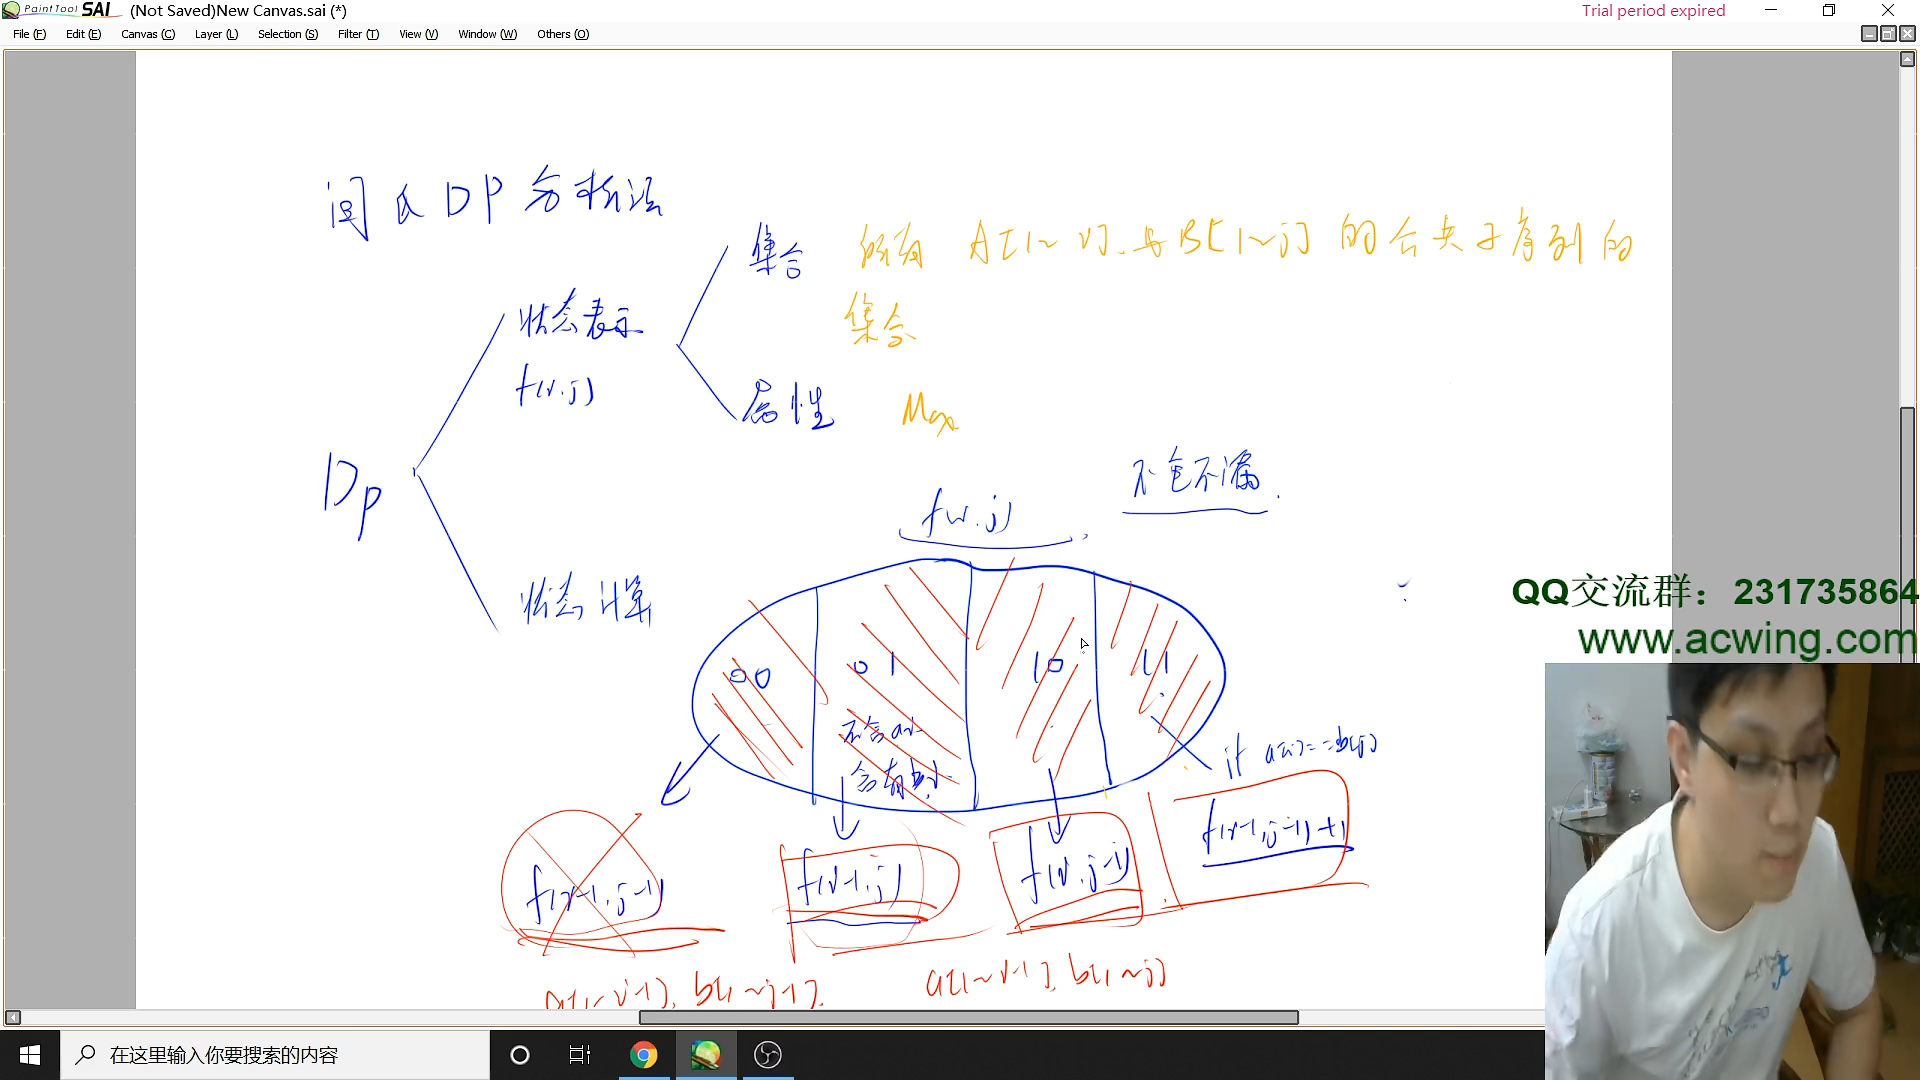 PaintTool SAI (Not Saved)New Canvas.sai (*)
Trial period expired
File (F) Edit (E) Canvas (C) Layer (L) Selection (S) Filter (T) View (V) Window (W) Others (O)
闫氏DP分析法
集合 所有 A[1~i]与B[1~j]的公共子序列的
集合
状态表示
f(i,j)
属性 Max
DP
不重不漏
f(i,j)
状态计算
00 01 10 11
不含ai
含有bj
if a[i]==b[j]
f(i-1,j-1) f(i-1,j) f(i,j-1) f(i-1,j-1)+1
a[1~i-1], b[1~j-1]
a[1~i-1], b[1~j]
QQ交流群：231735864
www.acwing.com
在这里输入你要搜索的内容